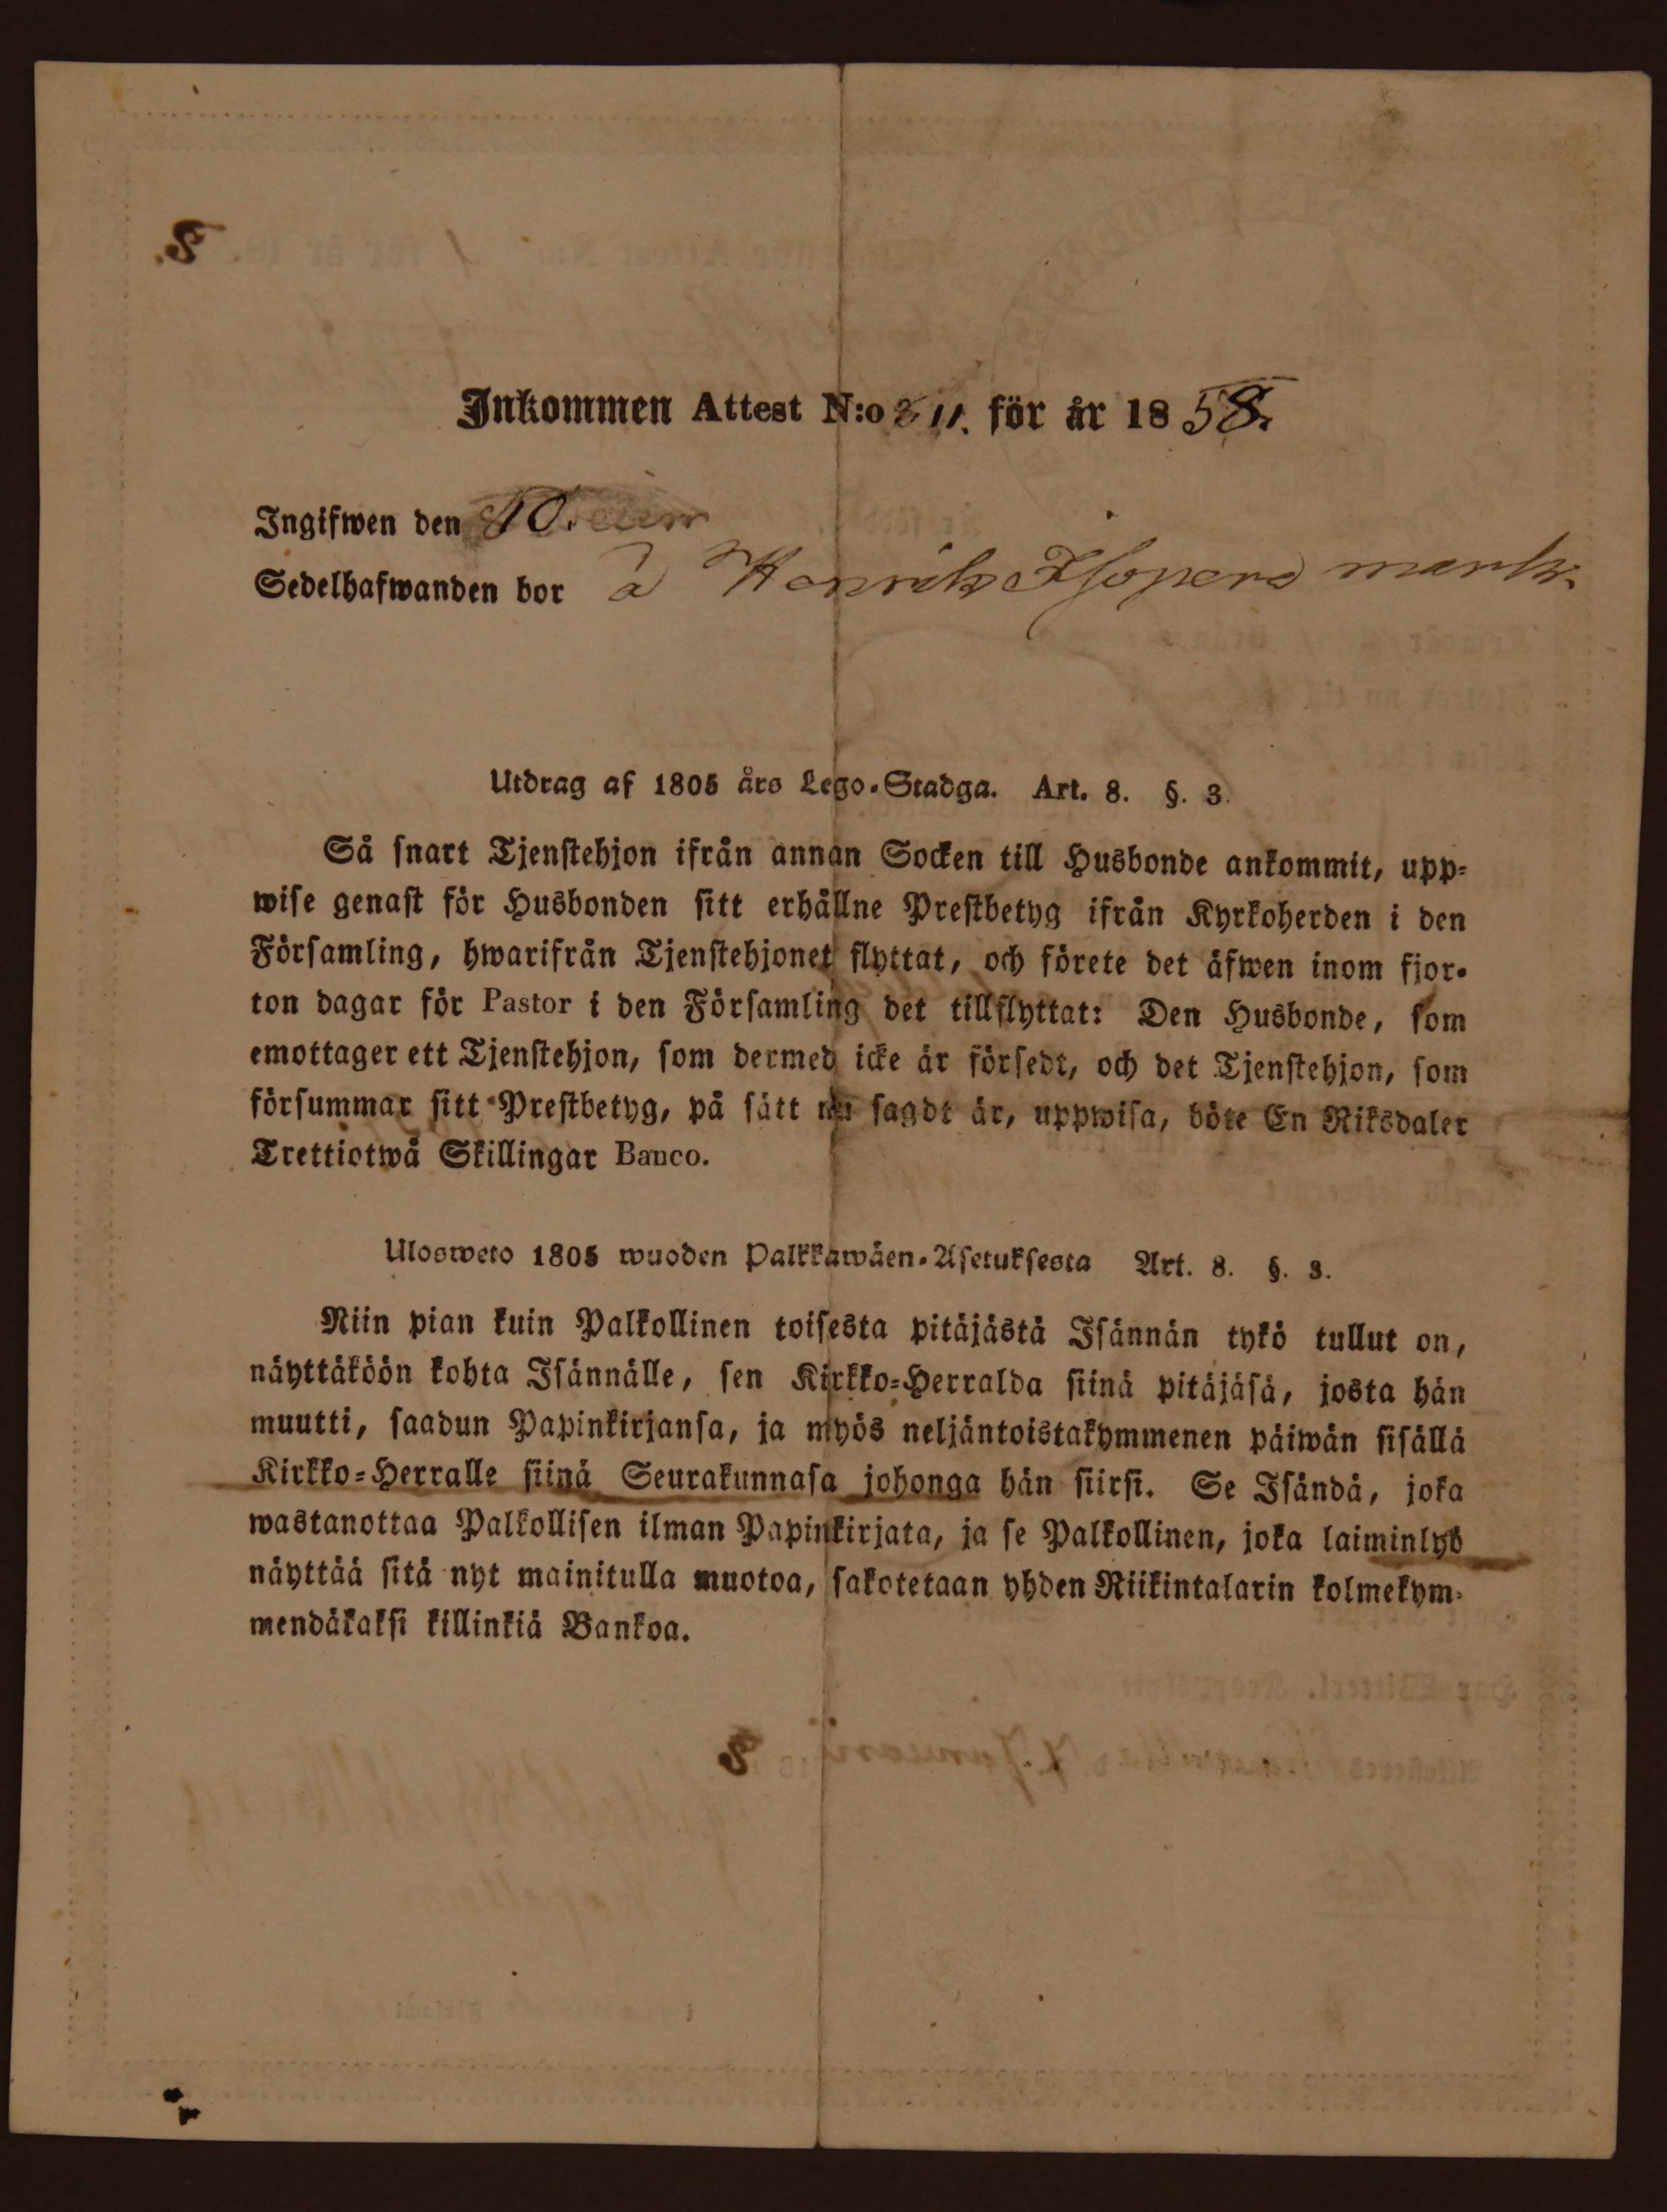 8.
Inkommen Attest N:o 311. för år 1858.
Ingifwen den 10.
Sedelhafwanden bor å Henriks mark.
Utdrag af 1805 års Lego-Stadga. Art. 8. §. 3.
Så snart Tjenstehjon ifrån annan Socken till Husbonde ankommit, upp-
wise genast för Husbonden sitt erhållne Prestbetyg ifrån Kyrkoherden i den
Församling, hwarifrån Tjenstehjonet flyttat, och förete det äfwen inom fjor-
ton dagar för Pastor i den Församling det tillflyttat: Den Husbonde, som
emottager ett Tjenstehjon, som dermed icke är försedt, och det Tjenstehjon, som
försummar sitt Prestbetyg, på sätt nu sagdt är, uppwisa, böte En Riksdaler
Trettiotwå Skillingar Banco.
Ulosweto 1805 wuoden Palkkawäen-Asetuksesta Art. 8. §. 3.
Niin pian kuin Palkollinen toisesta pitäjästä Isännän tykö tullut on,
näyttäköön kohta Isännälle, sen Kirkko-Herralda siinä pitäjäsä, josta hän
muutti, saadun Papinkirjansa, ja myös neljäntoistakymmenen päiwän sisällä
Kirkko-Herralle siinä Seurakunnasa johonga hän siirsi. Se Isändä, joka
wastanottaa Palkollisen ilman Papinkirjata, ja se Palkollinen, joka laiminlyö
näyttää sitä nyt mainitulla muotoa, sakotetaan yhden Riikintalarin kolmekym-
mendäkaksi killinkiä Bankoa.